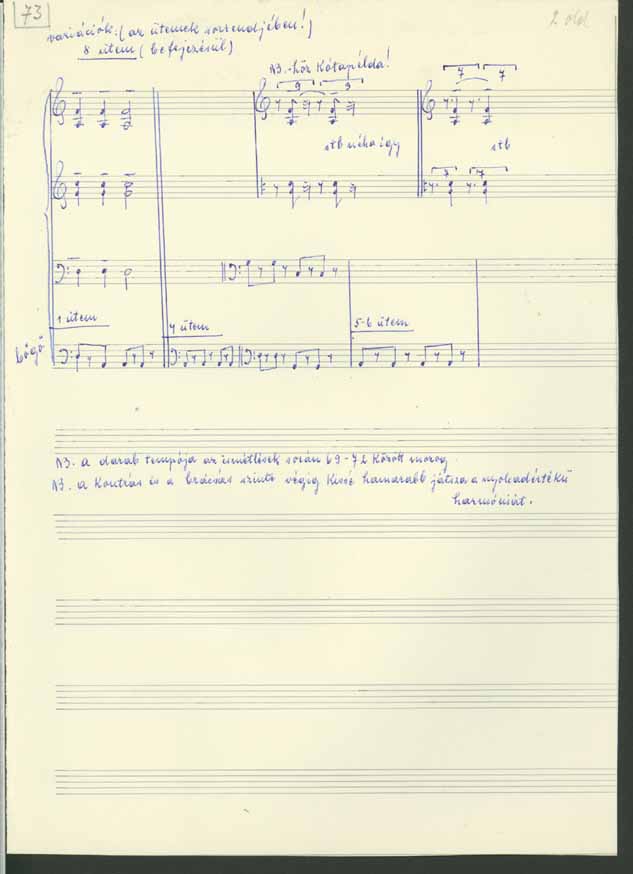 73
2 old
variációk: (az ütemek sorrendjében!)
8 ütem (befejezésül)
NB.-höz Kótapélda!
9 9
7 7
stb néha így
stb
7 7
1 ütem
4 ütem
5-6 ütem
bőgő
NB. a darab tempója az ismétlések során 69-72 között mozog
NB. a Kontrás és a brácsás szinte végig kissé hamarabb játsza a nyolcadértékű
harmóniát.